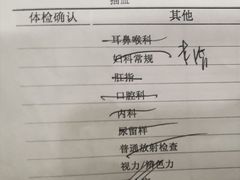 抽血
体检确认 其他
耳鼻喉科
妇科常规
肛指
口腔科
内科
尿留样
普通放射检查
视力/辨色力